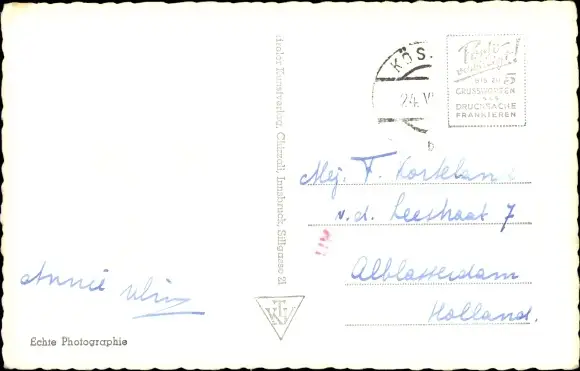 Tiroler Kunstverlag, Chizzali, Innsbruck, Sillgasse 21
KÖS
24. V
bis zu 5
GRUSSWORTEN
ALS
DRUCKSACHE
FRANKIEREN
b
Mej. F. Kortelan
v.d. Leestraat 7
Alblasserdam
Holland.
Annie
Echte Photographie